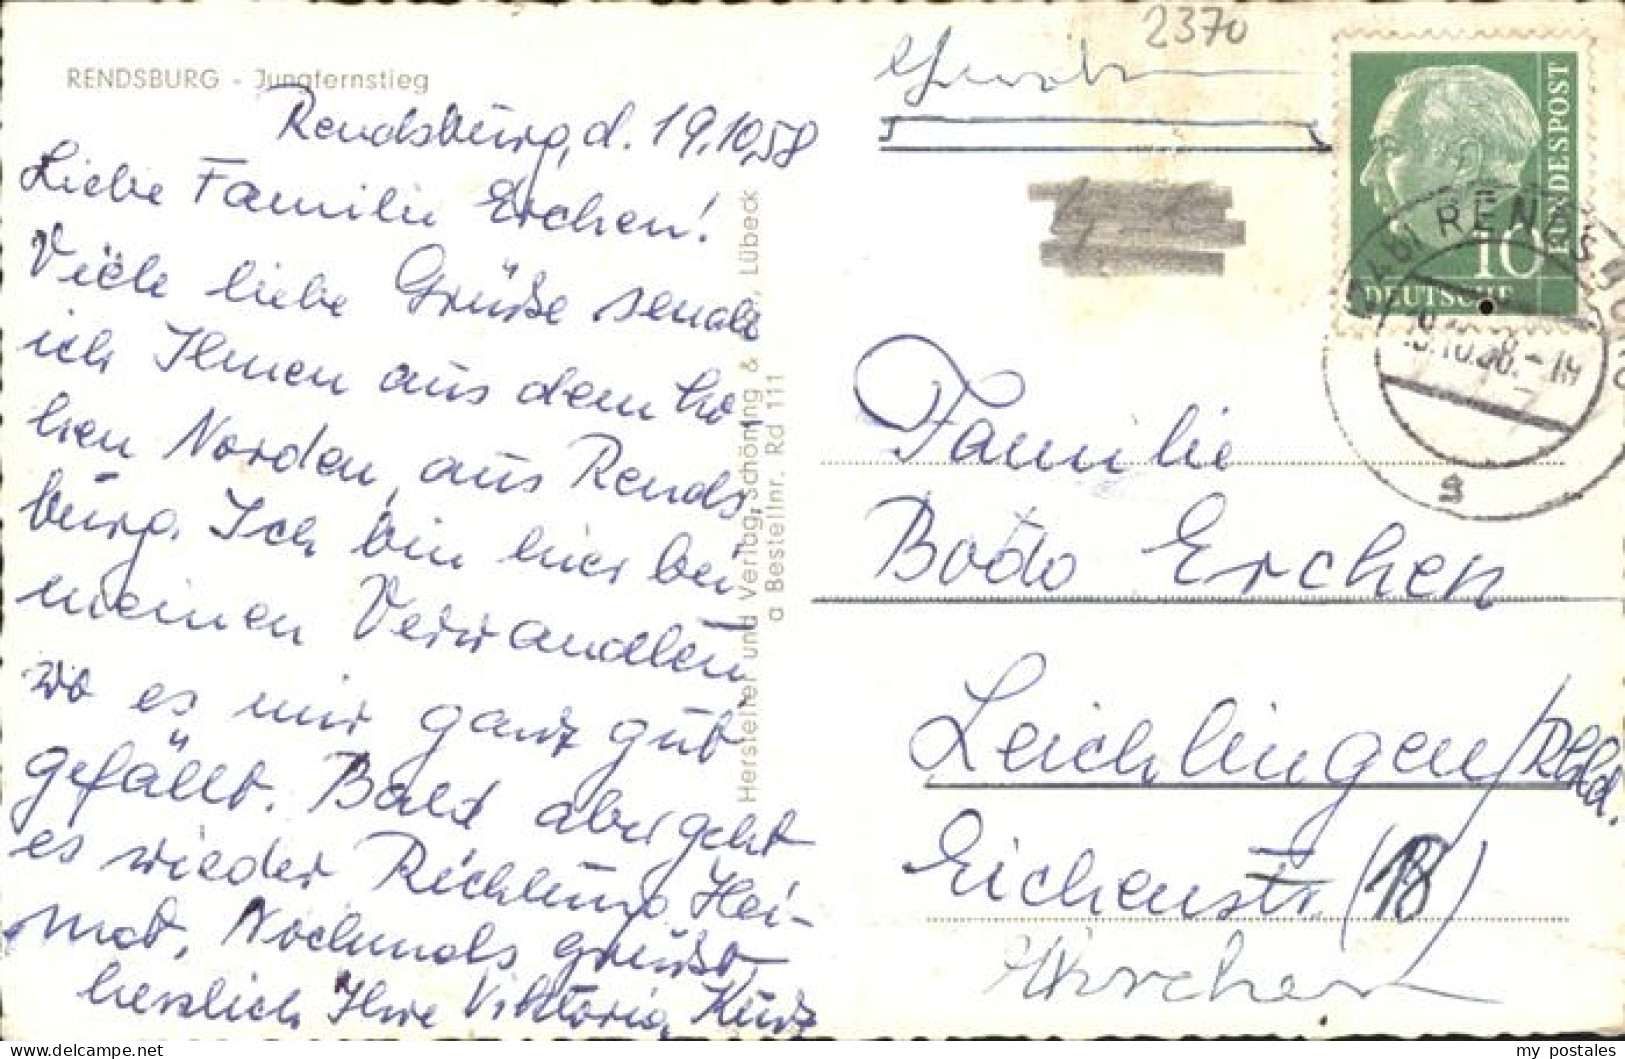 RENDSBURG - Jungfernstieg
Rendsburg, d. 19.10.58
Liebe Familie Erchen!
Viele liebe Grüße sende
ich Ihnen aus dem ho
hen Norden, aus Rends
burg. Ich bin hier bei
meinen Verwandten,
wo es mir ganz gut
gefällt. Bald aber geht
es wieder Richtung Hei-
mat. Nochmals grüßt
herzlich Ihre Viktoria Kurz
Hersteller und Verlag: Schöning & Co., Lübeck
a Bestellnr. Rd 111
2370
DEUTSCHE
BUNDESPOST
10
RENDSBURG
19.10.58.-19
a
Familie
Bodo Erchen
Leichlingen/Rhld.
Eichenstr. (18)
my postales